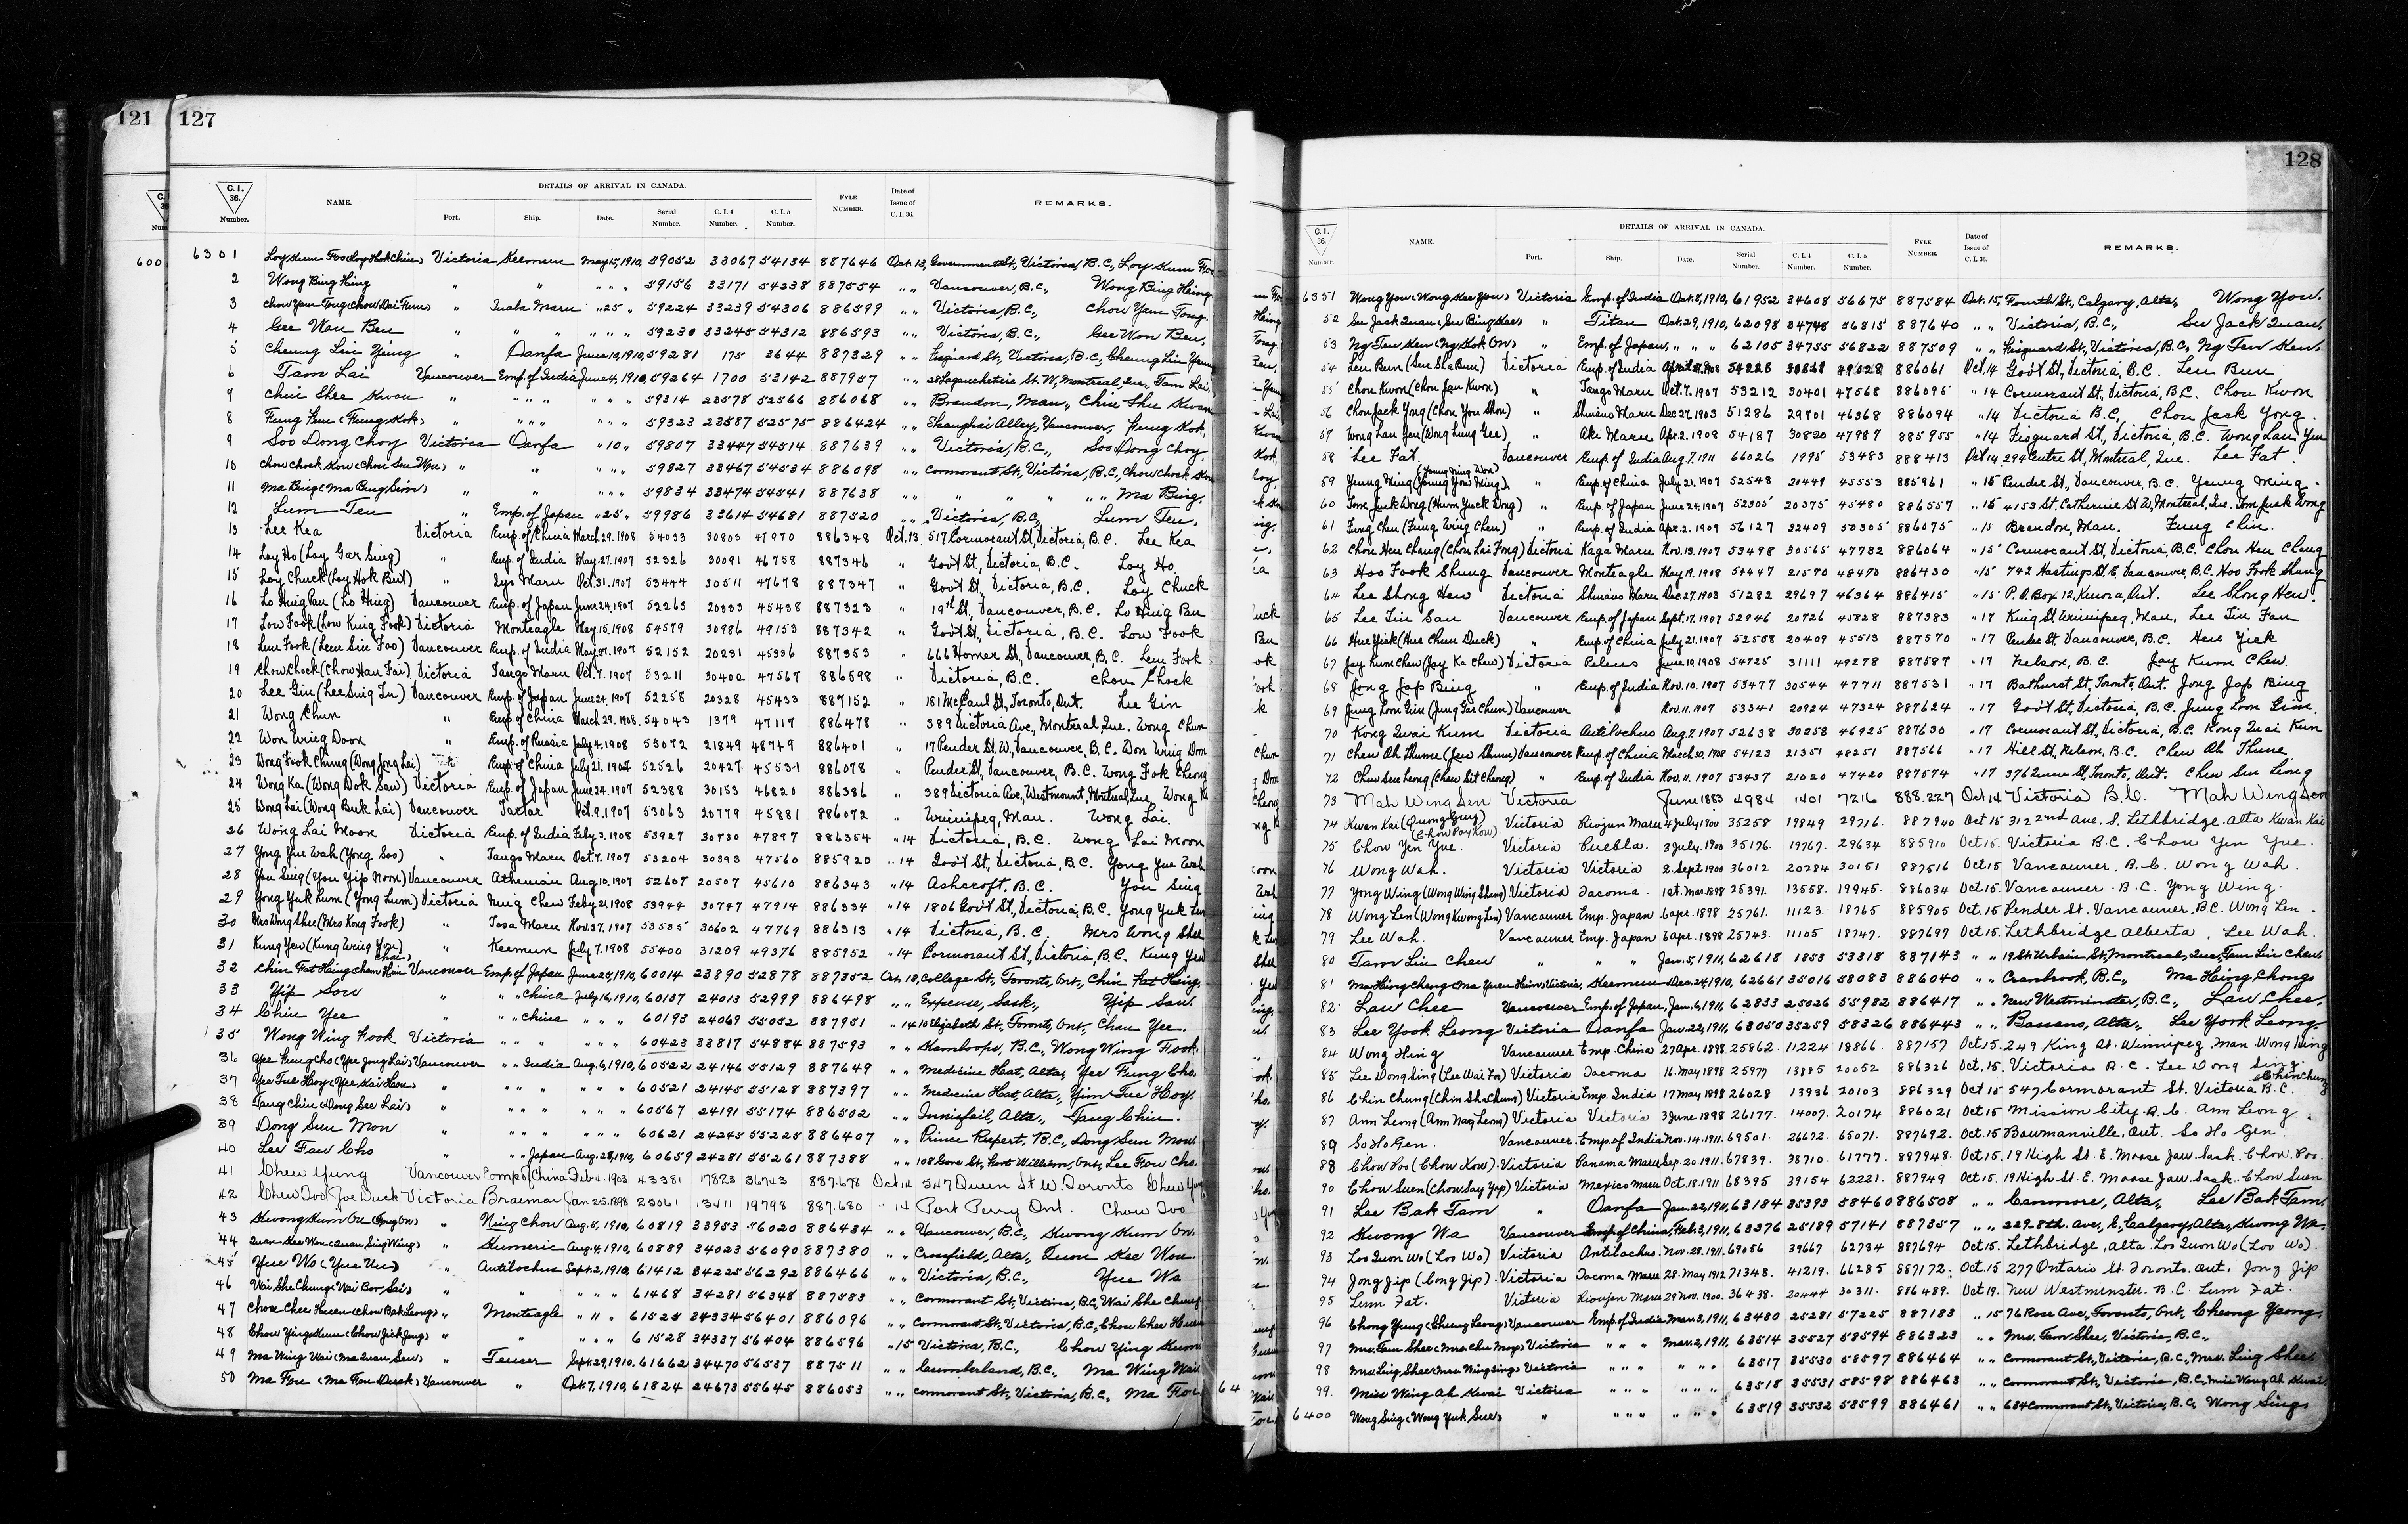 121
127
C. I. 36. Number.
NAME.
DETAILS OF ARRIVAL IN CANADA.
Port. Ship. Date. Serial Number. C. I. 4 Number. C. I. 5 Number.
FYLE NUMBER.
Date of Issue of C. I. 36.
REMARKS.
600
6301 Victoria May 15, 1910, 59052 33067 54134 887646 Oct. 13, Government St., Victoria, B.C., Loy Kum Foo
2 Wong Bing Hing " " " " " 59156 33171 54238 887554 " " Vancouver, B.C., Wong Bing Hing
3 Chow Yam Tong (Chow Dai Fun) " Inaba Maru " 25 " 59224 33239 54306 886599 " " Victoria, B.C., Chow Yam Tong.
4 Gee Won Ben " " " " " " 59230 33245 54312 886593 " " Victoria, B.C., Gee Won Ben,
5 Cheung Lin Ying " Oanfa June 10, 1910, 59281 175 3644 887329 " " Fisguard St., Victoria, B.C., Cheung Lin Yeung
6 Tam Lai Vancouver Emp. of India June 4, 1910, 59264 1700 53142 887957 " " 28 Lagauchetiere St. W, Montreal, Que., Tam Lai,
9 Chin Shee Kwan " " " " " " " 59314 23578 52566 886068 " " Brandon, Man., Chin Shu Kwan
8 Fung Hem (Fung Kok) " " " " " " " 59323 23587 52575 886424 " " Shanghai Alley, Vancouver, Fung Kok,
9 Soo Dong Choy Victoria Oanfa " 10 " 59807 33447 54514 887639 " " Victoria, B.C., Soo Dong Choy,
10 Chow Chock Kow (Chow Sue Wou) " " " " " 59827 33467 54534 886098 " " Cormorant St., Victoria, B.C., Chow Chock Kow
11 Ma Bing (Ma Bing Sion) " " " " " 59834 33474 54541 887638 " " " " " " " Ma Bing,
12 Lum Teu " Emp. of Japan " 25 " 59986 33614 54681 887520 " " Victoria, B.C., Lum Teu,
13 Lee Kea Victoria Emp. of China March 29. 1908 54033 30803 47970 886348 Oct. 13. 517 Cormorant St, Victoria, B.C. Lee Kea
14 Loy Ho (Loy Gar Sing) " Emp. of India May 27. 1907 52326 30091 46758 887346 " Gov't St., Victoria, B.C. Loy Ho.
15 Loy Chuck (Loy Hok But) " Iyo Maru Oct. 31. 1907 53444 30511 47678 887347 " Gov't St., Victoria, B.C. Loy Chuck
16 Lo Hing Pau (Lo Hing) Vancouver Emp. of Japan June 24, 1907 52263 20333 45438 887323 " 19th St, Vancouver, B.C. Lo Hing Bu
17 Low Fook (Low King Fook) Victoria Monteagle May 15. 1908 54579 30986 49153 887342 " Gov't St, Victoria, B.C. Low Fook
18 Lem Fook (Lem Sin Foo) Vancouver Emp. of India May 27. 1907 52152 20231 45336 887353 " 666 Homer St, Vancouver, B.C. Lem Fook
19 Chow Chock (Chow Han Fai) Victoria Tango Maru Oct. 7. 1907 53211 30400 47567 886598 " Victoria, B.C. Chow Chock
20 Lee Gin (Lee Suig In) Vancouver Emp. of Japan June 24, 1907 52258 20328 45433 887152 " 181 McCaul St, Toronto, Ont. Lee Gin
21 Wong Chun " Emp. of China March 29. 1908 54043 1379 47117 886478 " 389 Victoria Ave, Montreal, Que. Wong Chun
22 Won Wing Doon " Emp. of Russia July 4. 1908 55072 21849 48749 886401 " 17 Pender St. W, Vancouver, B.C. Don Wing Don
23 Wong Fook Chung (Wong Jong Lai) " Emp. of China July 21. 1907 52526 20427 45531 886078 " Pender St, Vancouver, B.C. Wong Fok Cheong
24 Wong Ka (Wong Dok Saw) Victoria Emp. of Japan June 24. 1907 52388 30153 46820 886386 " 389 Victoria Ave, Westmount, Montreal, Que Wong Ka
25 Wong Lai (Wong Buk Lai) Vancouver Tartar Oct. 9, 1907 53063 20779 45881 886072 " Winnipeg, Man. Wong Lai.
26 Wong Lai Moon Victoria Emp. of India Feby 3. 1908 53927 30730 47897 886354 " 14 Victoria, B.C. Wong Lai Moon
27 Yong Yue Wah (Yong Soo) " Tango Maru Oct. 7. 1907 53204 30393 47560 885920 " 14 Gov't St, Victoria, B.C. Yong Yue Wah
28 You Sing (You Yip Nom) Vancouver Athenian Aug. 10. 1907 52607 20507 45610 886343 " 14 Ashcroft, B.C. You Sing
29 Yong Yuk Lum (Yong Lum) Victoria Ning Chow Feby 21. 1908 53944 30747 47914 886334 " 14 1806 Gov't St., Victoria, B.C. Yong Yuk Lum
30 Mrs Wong Shee (Mrs Kong Fook) " Tosa Maru Nov. 27. 1907 53535 30602 47769 886313 " 14 Victoria, B.C. Mrs Wong Shee
31 Kung Yew (Kung Wing You) " Keemun July 7. 1908 55400 31209 49376 885952 " 14 Cormorant St, Victoria, B.C. Kung Yew
32 Vancouver Emp. of Japan June 25, 1910, 60014 23890 52878 887352 Oct. 13, College St., Toronto, Ont., Chin Fat Hing,
33 Yip Sou " " " China July 16, 1910, 60137 24013 52999 886498 " " Expanse, Sask., Yip Sau
34 Chin Yee " " " China " " " 60193 24069 55052 887951 " 14 10 Elizabeth St., Toronto, Ont., Chan Yee.
35 Wong Wing Fook Victoria " " " " " " 60423 33817 54884 887593 " " Kamloops, B.C., Wong Wing Fook.
36 Yee Fung Cho (Yee Jong Lai) Vancouver " " India Aug. 6, 1910, 60522 24146 55129 887649 " " Medicine Hat, Alta., Yee Fung Cho.
37 Yee Tue Hoy (Yee Kai Hou) " " " " " " " 60521 24145 55128 887397 " " Medicine Hat, Alta., Yim Tue Hoy.
38 Tang Chin (Dong See Lai) " " " " " " " 60567 24191 55174 886502 " " Innisfail, Alta., Tang Chin.
39 Dong Sun Mon " " " " " " " 60621 24245 55225 886407 " " Prince Rupert, B.C., Dong Sun Mon
40 Lee Fau Cho " " " Japan Aug. 28, 1910, 60659 24281 55261 887388 " " 108 Gore St., Fort William, Ont., Lee Fou Cho.
41 Chew Yung Vancouver Emp of China Feb. 4. 1903 43381 17823 36743 887.678 Oct 14 547 Queen St W. Toronto Chew Yung
42 Chew Too Joe Duck Victoria Braemar Jan 25. 1898 25061 13411 19798 887.680 " 14 Port Perry Ont. Chow Too
43 Kwong Kum On " Ning Chow Aug. 5, 1910, 60819 33953 56020 886434 " " Vancouver, B.C., Kwong Kum On.
44 Quan Kee Wou (Quan Sing Wing) " Kumeric Aug. 4, 1910, 60889 34023 56090 887380 " " Crossfield, Alta., Quon Kee Wou
45 Yue Wo (Yue Un) " Antilochus Sept. 2, 1910, 61412 34225 56292 886466 " " Victoria, B.C., Yue Wo
46 Wai She Chung (Wai Bor Sai) " " " " " 61468 34281 56348 887583 " " Cormorant St., Victoria, B.C., Wai She Chung
47 Chou Chee Huen (Chow Bak Leong) " Monteagle " 11 " 61525 34334 56401 886096 " " Cormorant St., Victoria, B.C., Chou Chee Huen
48 Chow Ying Kum (Chow Jick Jong) " " " " " 61528 34337 56404 886596 " 15 Victoria, B.C., Chow Ying Kum
49 Ma Wing Wai (Ma Quan Sew) " Teucer Sept. 29, 1910, 61662 34470 56537 887511 " " Cumberland, B.C., Ma Wing Wai
50 Ma Fou (Ma Fou Duck) Vancouver " Oct. 7, 1910, 61824 24673 55645 886053 " " Cormorant St., Victoria, B.C., Ma Fou
128
C. I. 36. Number.
NAME.
DETAILS OF ARRIVAL IN CANADA.
Port. Ship. Date. Serial Number. C. I. 4 Number. C. I. 5 Number.
FYLE NUMBER.
Date of Issue of C. I. 36.
REMARKS.
6351 Wong You (Wong Kee You) Victoria Emp. of India Oct. 8, 1910, 61952 34608 56675 887584 Oct. 15, Fourth St., Calgary, Alta., Wong You.
52 Su Jack Quan (Su Bing Kee) " Titan Oct. 29, 1910, 62098 34748 56815 887640 " " Victoria, B.C., Su Jack Quan,
53 Ng Ten Ken (Ng Kok On) " Emp. of Japan, " " " 62105 34755 56822 887509 " " Fisguard St., Victoria, B.C., Ng Ten Ken.
54 Victoria Emp. of India 886061 Oct. 14 Gov't St, Victoria, B.C. Leu Bun
55 Chou Kwon (Chou Jan Kwon) " Tango Maru Oct. 7. 1907 53212 30401 47568 886095 " 14 Cormorant St, Victoria, B.C. Chou Kwon
56 Chou Jack Yong (Chou You Shou) " Shinano Maru Dec 27. 1903 51286 29701 46368 886094 " 14 Victoria B.C., Chou Jack Yong.
57 Wong Lan Yen (Wong Lung Gee) " Aki Maru Apr. 2. 1908 54187 30820 47987 885955 " 14 Fisguard St, Victoria, B.C. Wong Lan Yen
58 Lee Fat Vancouver Emp. of India Aug. 7. 1911 66026 1995 53483 888413 Oct 14 294 Centre St, Montreal, Que. Lee Fat
59 Yeung Ning (Young You Ning) " Emp. of China July 21. 1907 52548 20449 45553 885961 " 15 Pender St, Vancouver, B.C. Yeung Ning.
60 Tom Juck Dong (Hum Yuck Dong) " Emp. of Japan June 24, 1907 52305 20375 45480 886557 " 15 4153 St. Catherine St W, Montreal, Que. Tom Juck Dong
61 Fung Chen (Fung Wing Chen) " Emp. of India Apr. 2. 1909 56127 22409 50305 886075 " 15 Brandon, Man. Fung Chin.
62 Chou Hen Chang (Chou Lai Fong) Victoria Kaga Maru Nov. 13. 1907 53498 30565 47732 886064 " 15 Cormorant St, Victoria, B.C. Chou Hen Chang
63 Hoo Fook Shung Vancouver Monteagle May 19. 1908 54447 21570 48470 886430 " 15 742 Hastings St, E, Vancouver, B.C. Hoo Fook Shung
64 Lee Shong Hew Victoria Shinano Maru Dec 27. 1903 51282 29697 46364 886415 " 15 P.O. Box 12, Kenora, Ont. Lee Shong Hew.
65 Lee Tin San Vancouver Emp. of Japan Sept. 17. 1907 52946 20726 45828 887383 " 17 King St. Winnipeg, Man. Lee Tin Fan
66 Hue Yick (Hue Chun Duck) " Emp. of China July 21. 1907 52508 20409 45513 887570 " 17 Pender St Vancouver, B.C. Hue Yick
67 Jay Kum Chew (Jay Ka Chew) Victoria Peleus June 10. 1908 54725 31111 49278 887587 " 17 Nelson, B.C. Jay Kum Chew.
68 Jong Jap Bing " Emp. of India Nov. 10. 1907 53477 30544 47711 887531 " 17 Bathurst St, Toronto, Ont. Jong Jap Bing
69 Jung Loon Gim (Jung Gar Chun) Vancouver " Nov. 11. 1907 53341 20924 47324 887624 " 17 Gov't St, Victoria, B.C. Jung Loon Gim.
70 Kong Quai Kum Victoria Antilochus Aug. 7. 1907 52638 30258 46925 887630 " 17 Cormorant St, Victoria, B.C. Kong Quai Kun
71 Chew Ah Thume (Jew Shum) Vancouver Emp. of China March 30. 1908 54123 21351 48251 887566 " 17 Hill St, Nelson, B.C. Chew Ah Thume
72 Chew Sue Leong (Chew Sit Cheong) " Emp. of India Nov. 11. 1907 53437 21020 47420 887574 " 17 376 Queen St, Toronto, Ont. Chew Sue Leong
73 Mah Wing Sen Victoria June 1883 4984 1401 7216 888.227 Oct 14 Victoria B.C. Mah Wing Sen
74 Kwan Kai (Quong Guy) Victoria Riojun Maru 4 July 1900 35258 19849 29716. 887940 Oct 15 312 2nd Ave. S. Lethbridge. Alta Kwan Kai
75 Chow Yen Yue. (Chow Poy Kow) Victoria Puebla. 3 July. 1900 35176. 19767. 29634 885910 Oct 15. Victoria B.C. Chow Yen Yue.
76 Wong Wah. Victoria Victoria 2. Sept 1900 36012 20284 30151 887516 Oct 15 Vancouver. B.C. Wong Wah.
77 Yong Wing (Wong Wing Shing) Victoria Tacoma. 1st. Mar. 1898 25391. 13558. 19945. 886034 Oct. 15. Vancouver. B.C. Yong Wing.
78 Wong Len (Wong Kwong Len) Vancouver Emp. Japan 6 Apr. 1898 25761. 11123. 18765 885905 Oct. 15 Pender St. Vancouver. B.C. Wong Len.
79 Lee Wah. Vancouver Emp. Japan 6 Apr. 1898 25743. 11105 18747. 887697 Oct 15. Lethbridge Alberta. Lee Wah.
80 Tam Lin Chew " " " Jan. 5, 1911, 62618 1853 53318 887143 " " 19 St. Urbain St., Montreal, Que., Tam Lin Chew
81 Ma Hing Cheng (Ma Yuen Hin) Victoria, Keemun Dec. 24, 1910, 62661 35016 58083 886040 " " Cranbrook, B.C., Ma Hing Chong
82. Law Chee Vancouver Emp. of Japan, Jan. 6, 1911, 62833 25026 55982 886417 " " New Westminster, B.C., Law Chee.
83 Lee Yook Leong Victoria Oanfa Jan. 22, 1911, 63050 35259 58326 886443 " " Bassano, Alta., Lee York Leong.
84 Wong Hing Vancouver Emp. China 27 Apr. 1898 25862. 11224 18866. 887157 Oct 15. 249 King St. Winnipeg Man Wong Hing
85 Lee Dong Sing (Lee Wai Foo) Victoria Tacoma 16. May 1898 25977 13885 20052 886326 Oct. 15. Victoria B.C. Lee Dong Sing
86 Chin Chung (Chin Sha Chung) Victoria Emp. India 17 May 1898 26028 13936 20103 886329 Oct 15 547 Cormorant St. Victoria B.C. Chin Chung
87 Ann Leong (Ann Nam Leong) Victoria Victoria 3 June 1898 26177. 14007. 20174 886021 Oct 15 Mission City. B.C. Ann Leong.
89 So Ho Gen. Vancouver. Emp. of India Nov. 14. 1911. 69501. 26672. 65071. 887692. Oct. 15 Bowmanville. Ont. So Ho Gen.
88 Chow Poo (Chow Kow). Victoria Canama Maru Sep. 20. 1911. 67839. 38710. 61777. 887948. Oct 15. 19 High St. E. Moose Jaw Sask. Chow Poo.
90 Chow Suen (Chow Say Yap) Victoria Mexico Maru Oct. 18. 1911 68395 39154 62221. 887949 Oct 15. 19 High St. E. Moose Jaw Sask. Chow Suen
91 Lee Bak Tam " Oanfa Jan. 22, 1911, 63184 35393 58460 886508 " " Canmore, Alta., Lee Bak Tam
92 Kwong Wa Vancouver Emp. of China, Feb. 3, 1911, 63376 25189 57141 887357 " " 229-8th. Ave., E., Calgary, Alta., Kwong Wa
93 Loo Quon Wo (Loo Wo) Victoria Antilochus. Nov. 28. 1911. 69056 39667 62734 887694 Oct 15. Lethbridge, Alta. Loo Quon Wo (Loo Wo).
94 Jong Jip (Cong Jip). Victoria Tacoma Maru 28. May 1912 71348. 41219. 66285 887172. Oct. 15 277 Ontario St. Toronto. Ont. Jong Jip
95 Lum Fat. Victoria Rioujun Maru 29 Nov. 1900. 36438. 20444 30311. 886489. Oct 19. New Westminster. B.C. Lum Fat.
96 Chong Yung (Cheung Leong) Vancouver Emp. of India Mar. 3, 1911, 63480 25281 57225 887183 " 15 76 Rose Ave., Toronto, Ont., Cheong Yeong,
97 Mrs. Tam Shee (Mrs. Chu Moy) Victoria " " " Mar. 2, 1911, 63514 35527 58594 886323 " " Mrs. Tam Shee, Victoria, B.C.,
98 Mrs. Ling Shee (Mrs. Wing Sing) Victoria " " " " " " 63517 35530 58597 886464 " " Cormorant St., Victoria, B.C., Mrs. Ling Shee
99. Miss Wing Ah Kwai Victoria " " " " " " 63518 35531 58598 886463 " " Cormorant St., Victoria, B.C., Miss Wong Ah Kwai
6400 Wong Sing (Wong Yuk Sue) " " " " " " " 63519 35532 58599 886461 " " 634 Cormorant St., Victoria, B.C., Wong Sing